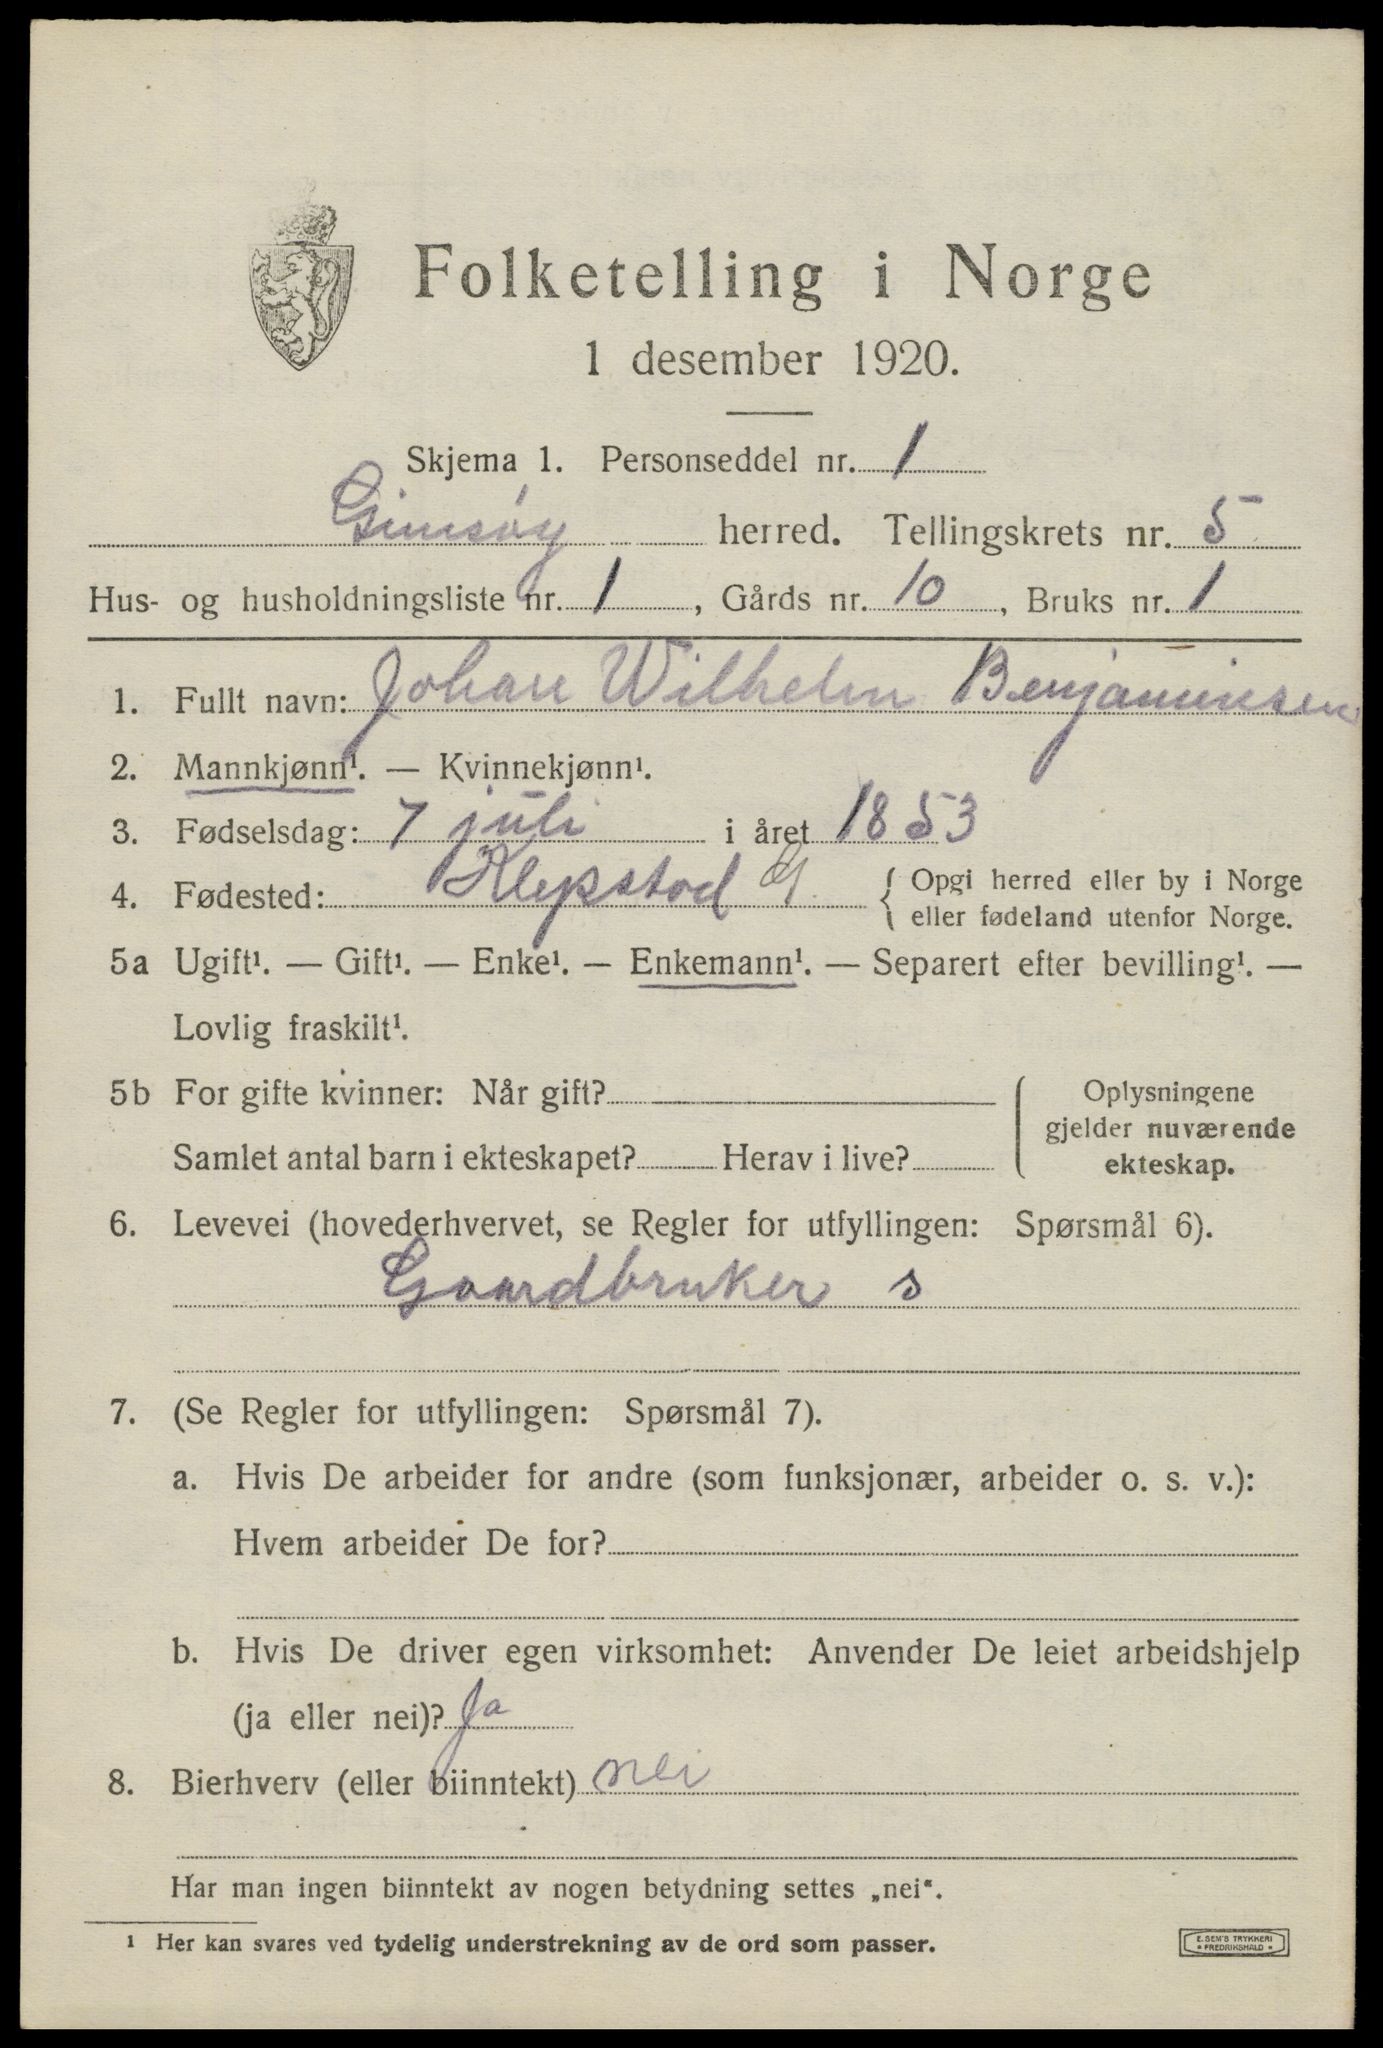 Folketelling i Norge
1 desember 1920.
Skjema 1. Personseddel nr. 1
Gimsøy herred. Tellingskrets nr. 5
Hus- og husholdningsliste nr. 1, Gårds nr. 10, Bruks nr. 1
1. Fullt navn: Johan Wilhelm Benjaminsen
2. Mannkjønn¹. — Kvinnekjønn¹.
3. Fødselsdag: 7 juli i året 1853
4. Fødested: Klepstad G. { Opgi herred eller by i Norge
eller fødeland utenfor Norge.
5a Ugift¹. — Gift¹. — Enke¹. — Enkemann¹. — Separert efter bevilling¹. —
Lovlig fraskilt¹.
5b For gifte kvinner: Når gift?
Samlet antal barn i ekteskapet? Herav i live?
Oplysningene
gjelder nuværende
ekteskap.
6. Levevei (hovederhvervet, se Regler for utfyllingen: Spørsmål 6).
Gaardbruker s
7. (Se Regler for utfyllingen: Spørsmål 7).
a. Hvis De arbeider for andre (som funksjonær, arbeider o. s. v.):
Hvem arbeider De for?
b. Hvis De driver egen virksomhet: Anvender De leiet arbeidshjelp
(ja eller nei)? Ja
8. Bierhverv (eller biinntekt) nei
Har man ingen biinntekt av nogen betydning settes „nei“.
¹ Her kan svares ved tydelig understrekning av de ord som passer.
E. SEM'S TRYKKERI
* FREDRIKSHALD *